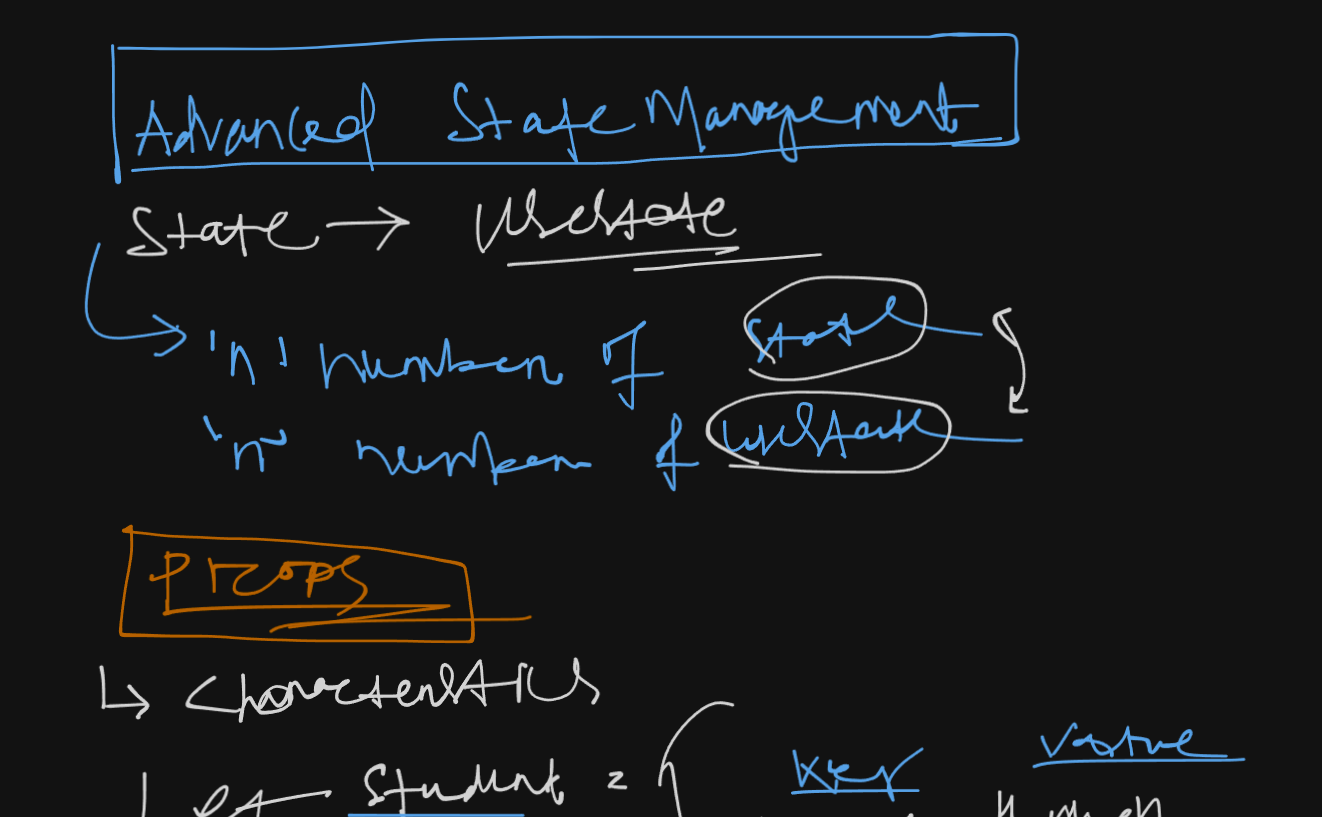 Advanced State Management
State → Usestate
'n' number of state
'n' number of usestate
Props
↳ Characteristics
let Student = {
Key Value